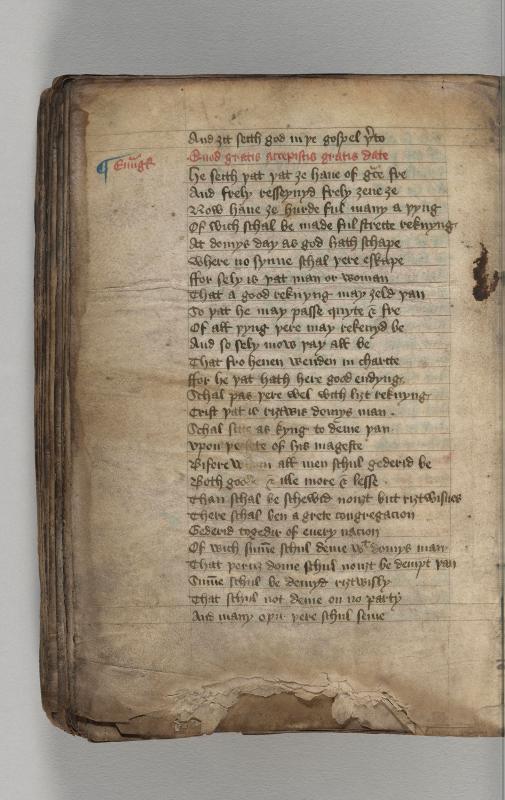 And ȝit seith god in þe gospel þerto
Euuᷠg̃
Quod gratis accepistis gratis date
he seith þat þat ȝe haue of gᷓce fre
And frely resseyuyd frely ȝeue ȝe
Now haue ȝe hurde ful many a þyng
Of wich schal be made ful streite reknyng
At domys day as god hath schape
Where no synne schal þere eskape
ffor sely is þat man or woman
That a good reknyng may ȝeld þan
So þat he may passe quyte & fre
Of all þyng þere may rekenyd be
And so sely mow þay all be
That fro henen wenden in charite
ffor he þat hath here good endyng
Schal pas þere wel with liȝt reknyng
Crist þat is riȝtwis domys man
Schal sitte as kyng to deme þan
Vpon þe sete of his mageste
Bifore all men schul gederid be
Both good & ille more & lesse
Than schal be schewid nouȝt but riȝtwisnes
There schal ben a grete congregacion
Gederid togedir of euery nacion
Of wich su̅me schul deme wᵗ domys man
That þeruȝ dome schul nouȝt be dempt þan
Su̅me schul be demyd riȝtwisly
That schul not deme on no party
And many oþir þere schul seme